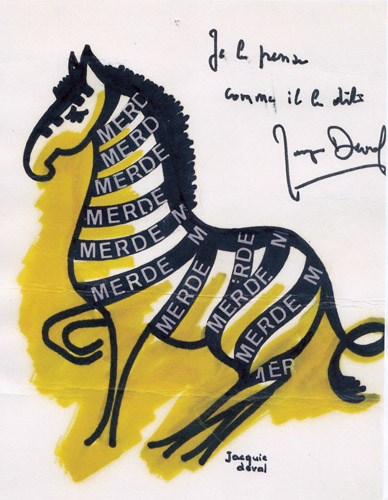 Je le pense
comme il le dit
Jacques Deval
MERD
MERD
MERDE
MERDE M
MERDE M
MERDE M
MERDE
ERDE M
MERDE
MERDE M
MER
Jacquie
deval